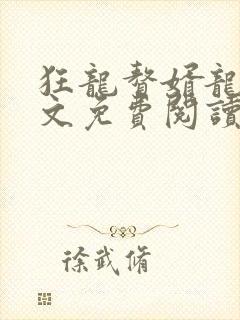 狂龍贅婿龍
文免費閱讀
徐武脩